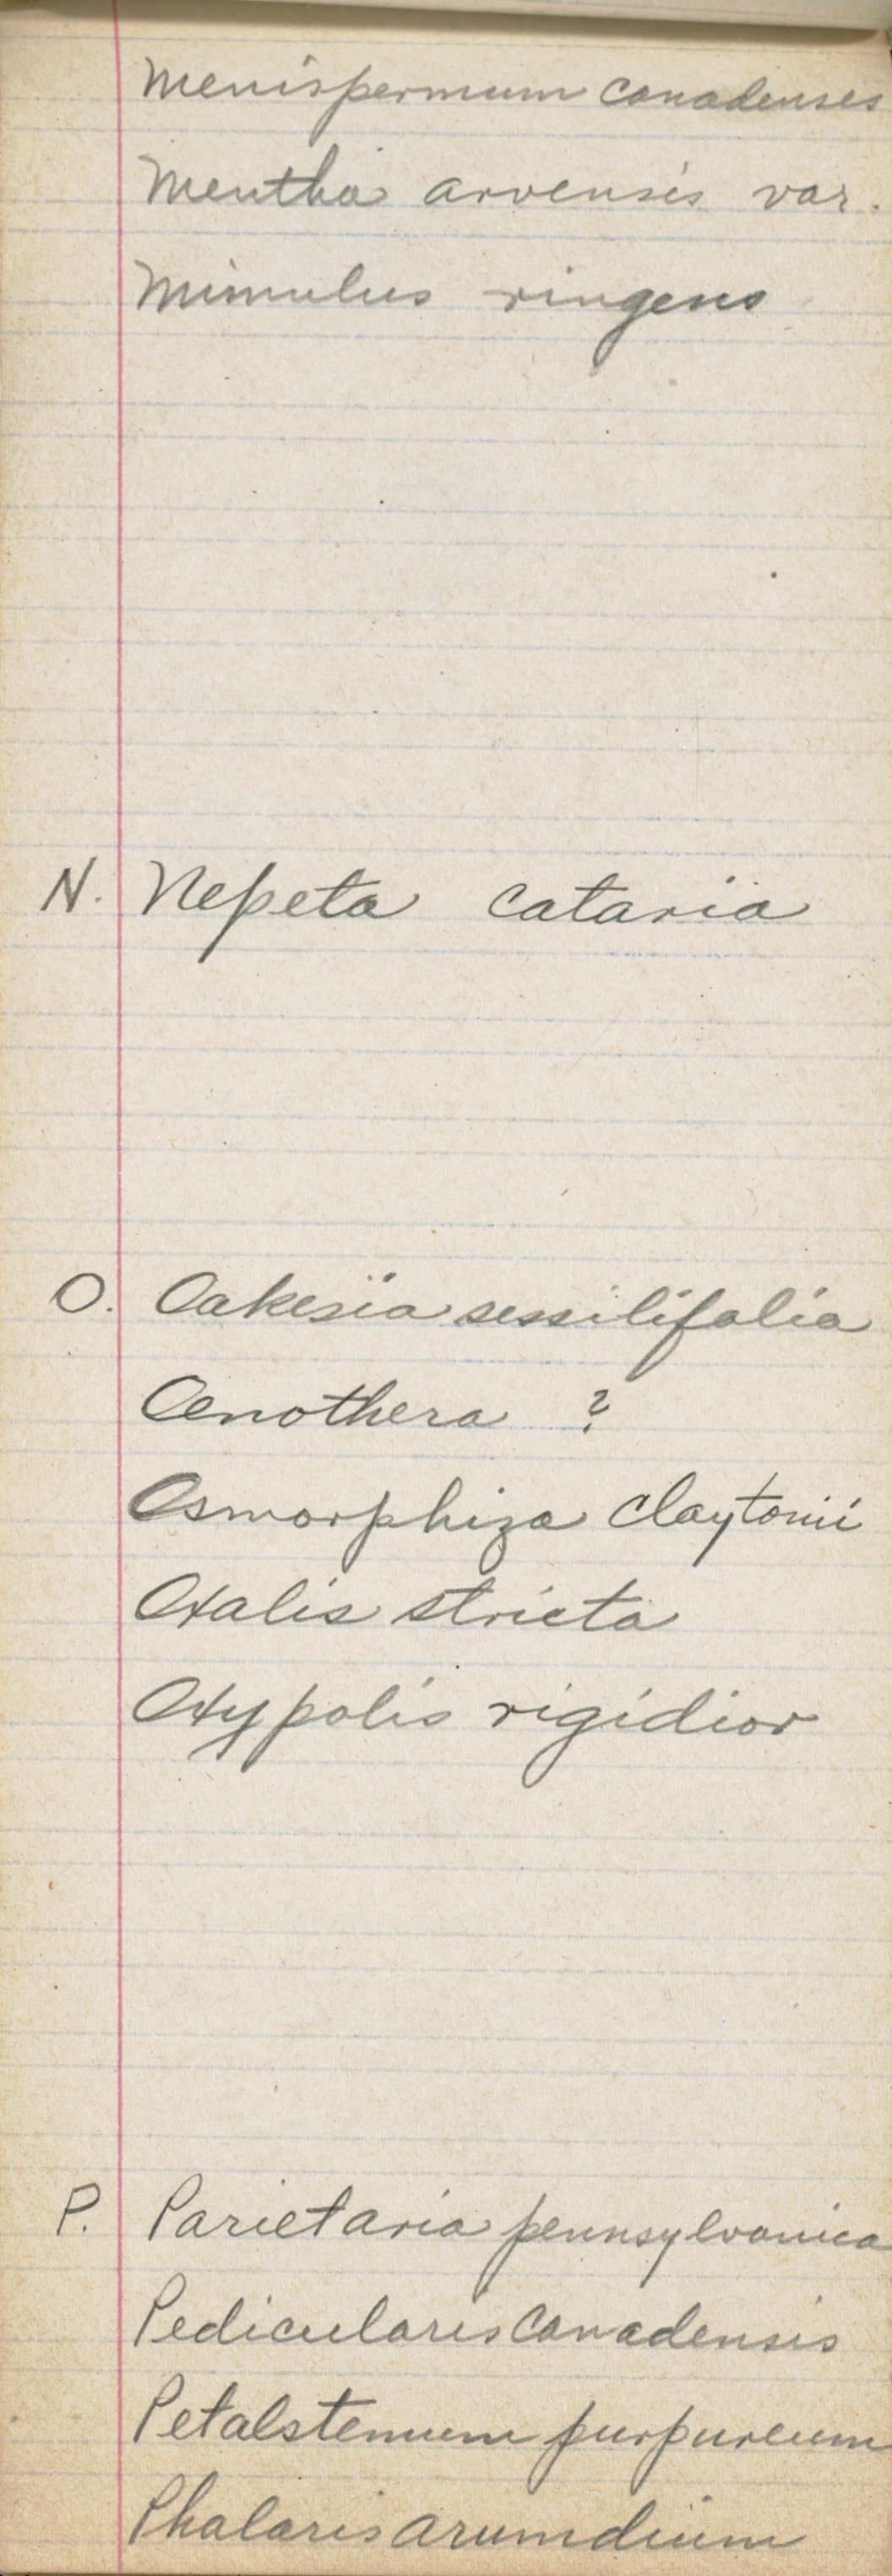 Menispermum canadenses
Mentha arvensis var.
Mimulus ringens
N. Nepeta cataria
O. Oakesia sessilifolia
Oenothera ?
Osmorphiza claytonii
Oxalis stricta
Oxypolis rigidior
P. Parietaria pennsylvanica
Pedicularis canadensis
Petalstemum purpureum
Phalaris arumdium